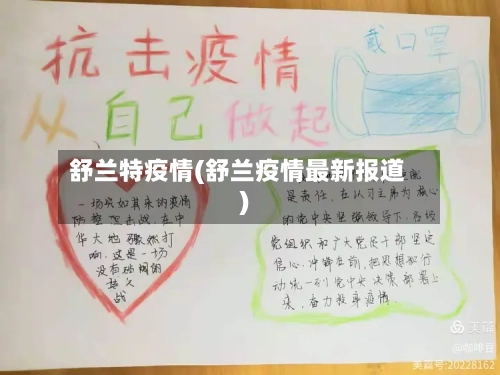 抗击疫情
戴口罩
从自己做起
舒兰特疫情(舒兰疫情最新报道
)
一场突如其来的疫情
防控阻击战，在中
华大地骤然打
响，这是一场
没有硝烟的
战
是责任，在以习主席为核心
的党中央坚强领导下，各级
党组织和广大党员干部坚定
信心，冲锋在前，把思想和行
动统一到党中央决策部署上
来，奋力救身疫情
美篇
@咖啡豆
美篇号:20228162